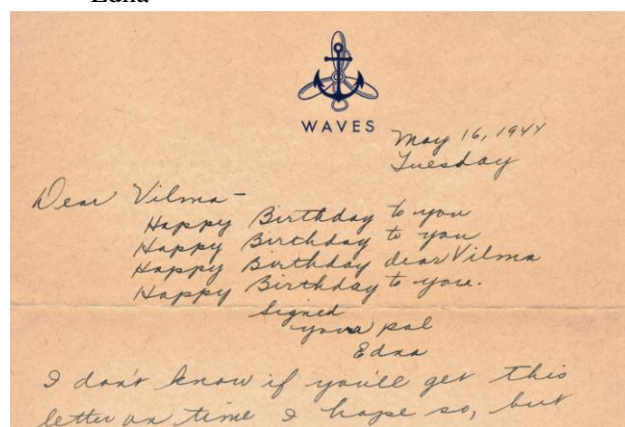 Edna
WAVES
May 16, 1944
Tuesday
Dear Vilma –
Happy Birthday to you
Happy Birthday to you
Happy Birthday dear Vilma
Happy Birthday to you.
Signed
your pal
Edna
I don't know if you'll get this
letter on time I hope so, but